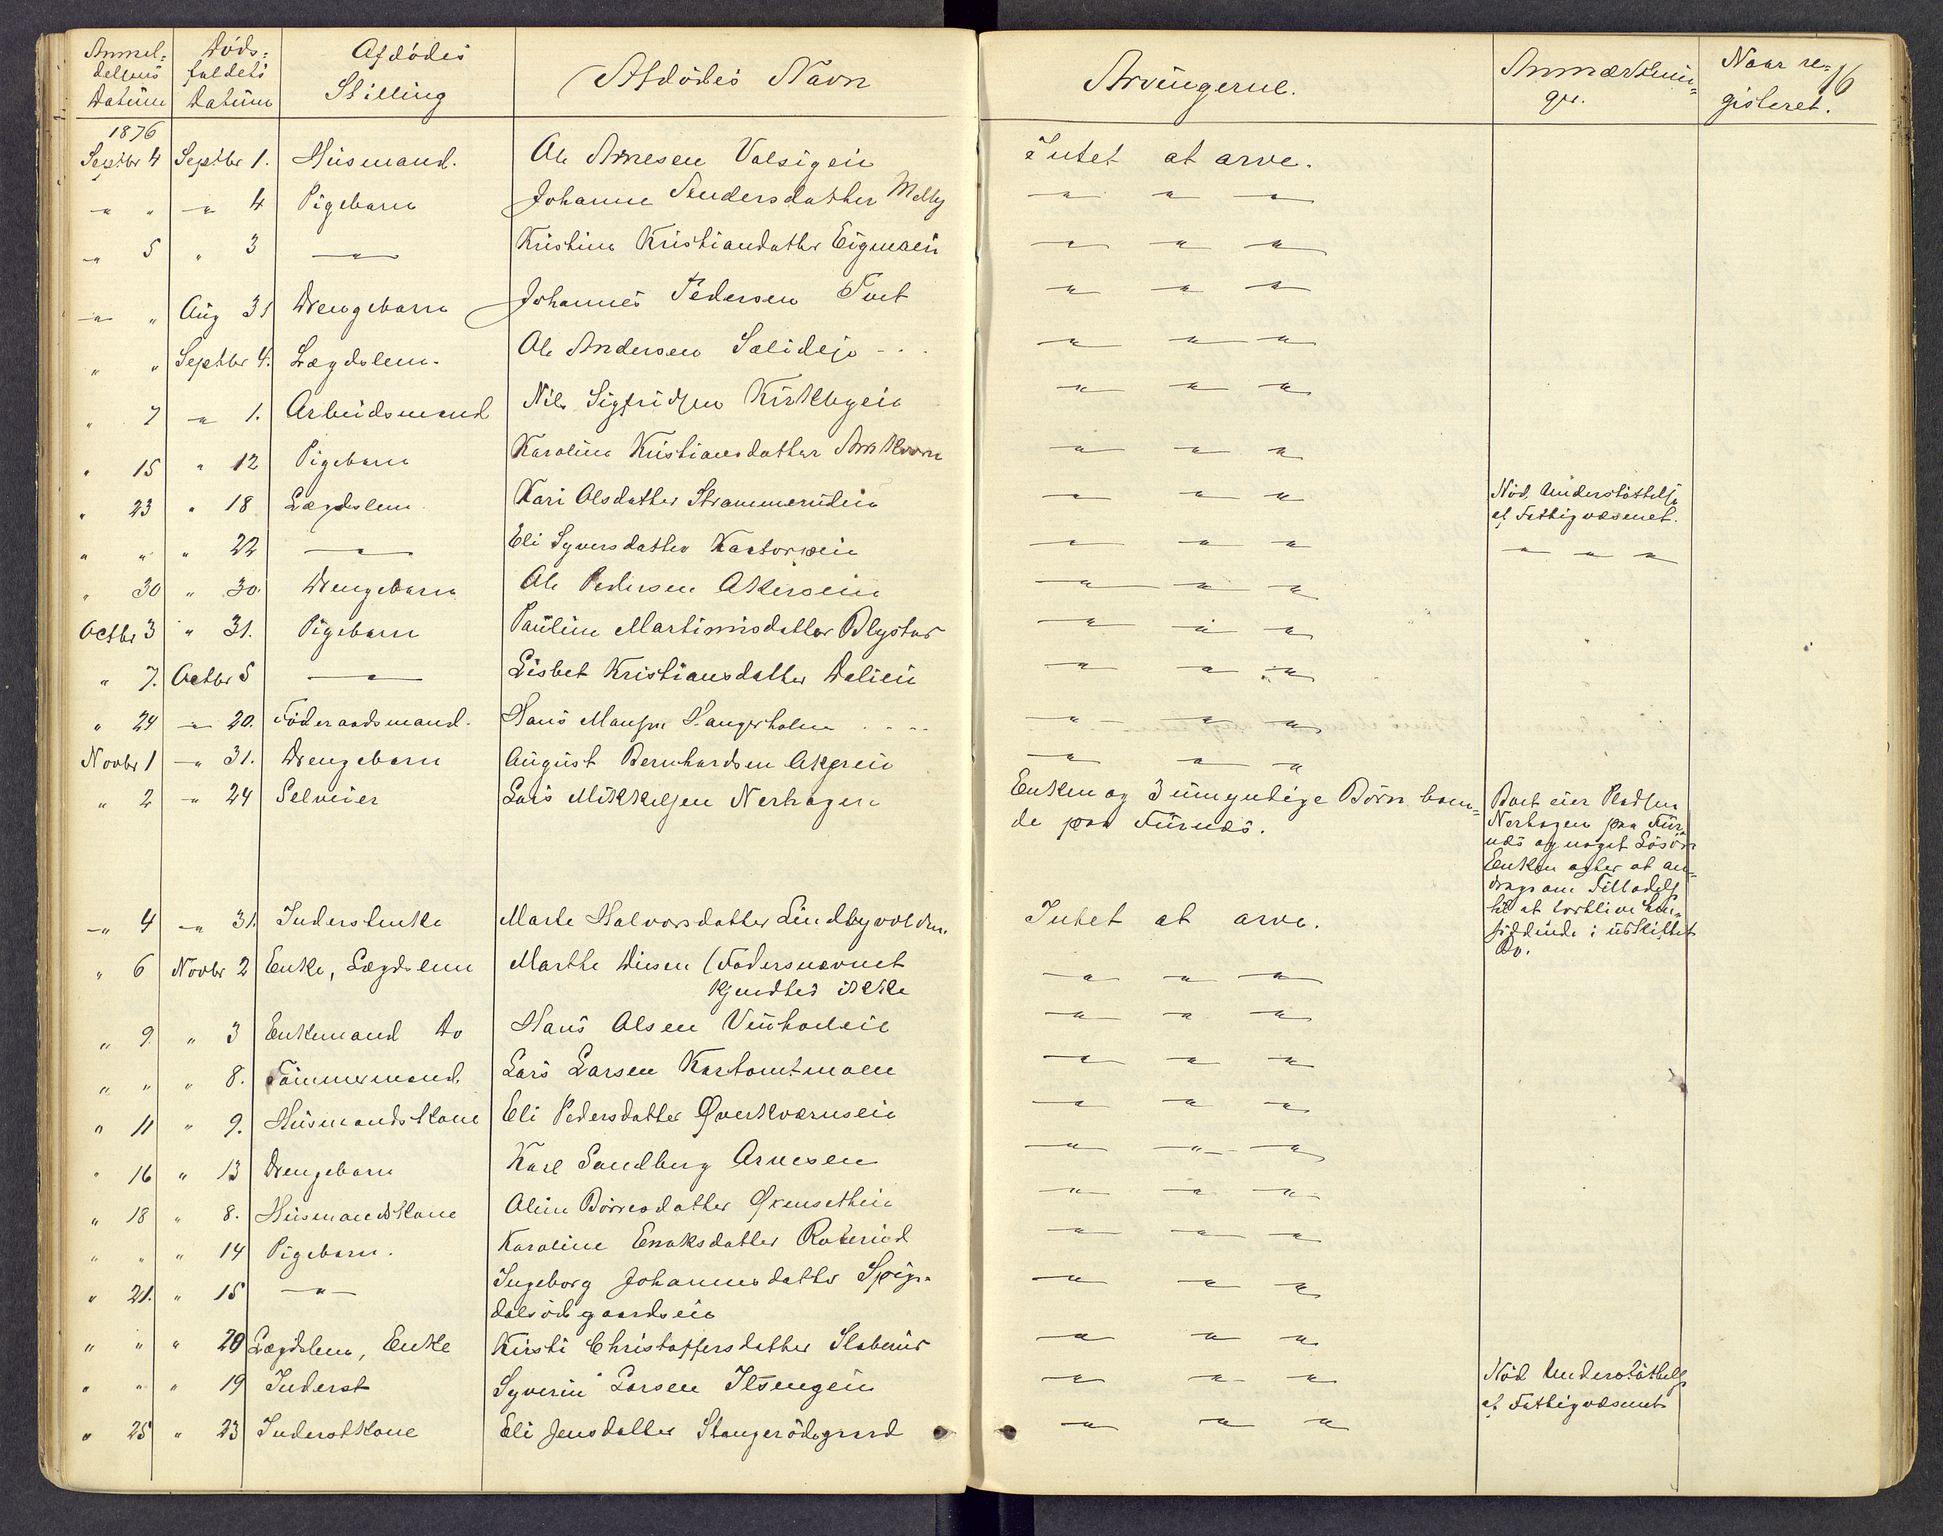 Anmel= Døds= Afdødes Afdødes Navn Arvingerne. Anmærknin= Naar re= 16
delsens faldets Stilling ger. gisteret.
Datum Datum
1876
Septbr 4 Septbr 1. Husmand. Ole Arnesen Valsigeie Intet at arve.
" " " 4 Pigebarn Johanne Andersdatter Melby " " "
" 5 " 3 " Kristine Kristiandatter " " "
" " Aug 31 Drengebarn Johannes Pedersen Tvet " " "
" " Septbr 4. Lægdslem. Ole Andersen " " "
" 7 " 1. Arbeidsmand Nils Sigfridsen Kirkbyeie " " "
" 15 " 12 Pigebarn Karoline Kristiansdatter " " "
" 23 " 18 Lægdslem. Kari Olsdatter Strammerudeie " " " Nød Understøttelse
af Fattigvæsenet.
" " " 22 " Eli Syversdatter " " " " " "
" 30 " 30. Drengebarn Ole Pedersen Akerseie " " "
Octbr 3 " 31. Pigebarn Pauline Martinusdatter Blystad " " "
" 7. Octbr 5 " Lisbet Kristiansdatter Dalieie " " "
" 24 " 20. Føderaadsmand. Hans Mansen Hangerholm " " "
Novbr 1 " 31. Drengebarn August Bernhardsen " " "
" 2 " 24 Selveier Lars Mikkelsen Nerhagen Enken og 3 umyndige Børn, boen= Boet eier Pladsen
de paa Furnes. Nerhagen paa Fur=
nes og noget Løsøre
Enken agter at an=
drage om Tilladelse
til at forblive hen=
siddende i uskiftet
Bo.
" 4 " 31. Inderstenke Marte Halvorsdatter Lindbyvolden. Intet at arve.
" 6 Novbr 2 Enke, Lægdslem Marthe Diesen (Fadersnavnet " " "
kjendtes ikke
" 9 " 3 Enkemand Do Hans Olsen " " "
" " " 8. Tømmermand. Lars Larsen " " "
" 11 " 9. Husmandskone Eli Pedersdatter Øverkværnseie " " "
" 16 " 13 Drengebarn Karl Sandberg Arnesen " " "
" 18 " 8. Husmandskone Oline Børresdatter " " "
" " " 14 Pigebarn. Karoline Enoksdatter " " "
" 21. " 15 " Ingeborg Johannesdatter Spigs=
dalsødegaardseie " " "
" " " 20 Lægdslem, Enke Kirsti Christoffersdatter " " "
" " " 19 Inderst Syverin Larsen Ilsengeie " " " Nød Understøttelse
af Fattigvæsenet
" 25 " 23 Inderstkone Eli Jensdatter Stangerødegaard " " "